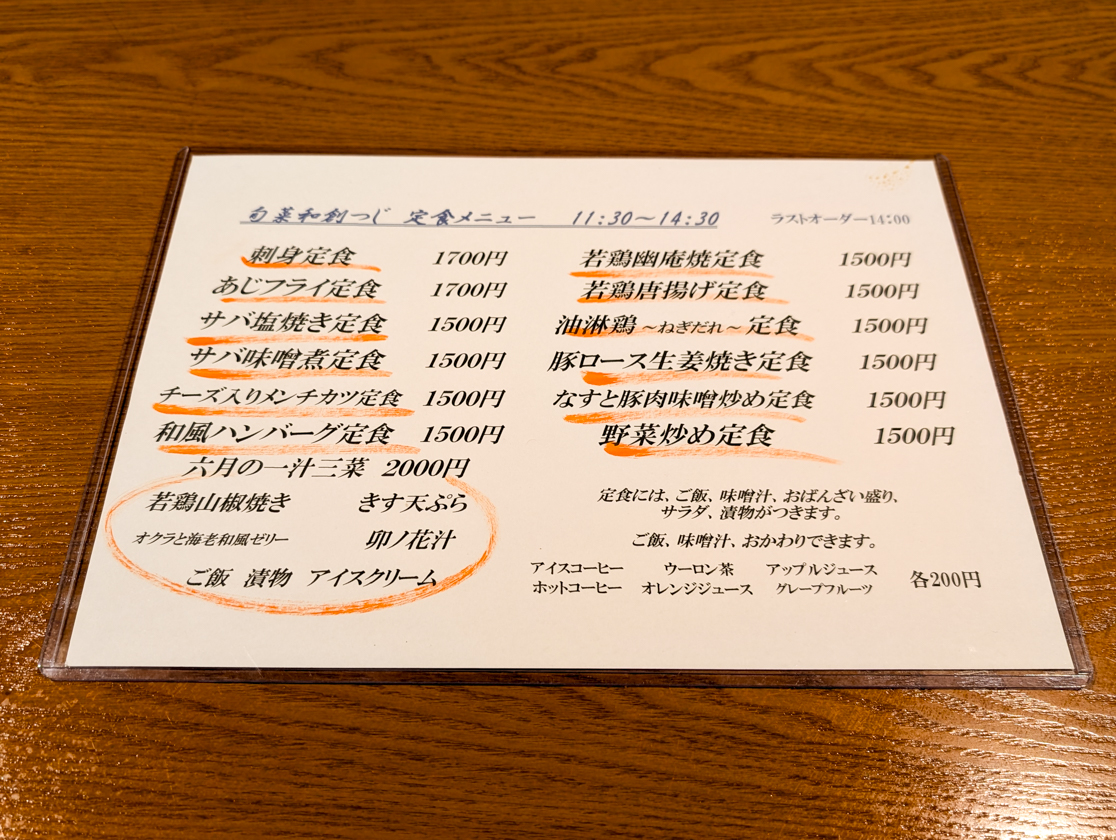 旬菜和創つじ 定食メニュー 11:30～14:30 ラストオーダー14:00
刺身定食 1700円
あじフライ定食 1700円
サバ塩焼き定食 1500円
サバ味噌煮定食 1500円
チーズ入りメンチカツ定食 1500円
和風ハンバーグ定食 1500円
六月の一汁三菜 2000円
若鶏山椒焼き きす天ぷら
オクラと海老和風ゼリー 卯ノ花汁
ご飯 漬物 アイスクリーム
若鶏幽庵焼定食 1500円
若鶏唐揚げ定食 1500円
油淋鶏～ねぎだれ～定食 1500円
豚ロース生姜焼き定食 1500円
なすと豚肉味噌炒め定食 1500円
野菜炒め定食 1500円
定食には、ご飯、味噌汁、おばんざい盛り、
サラダ、漬物がつきます。
ご飯、味噌汁、おかわりできます。
アイスコーヒー ウーロン茶 アップルジュース
ホットコーヒー オレンジジュース グレープフルーツ
各200円